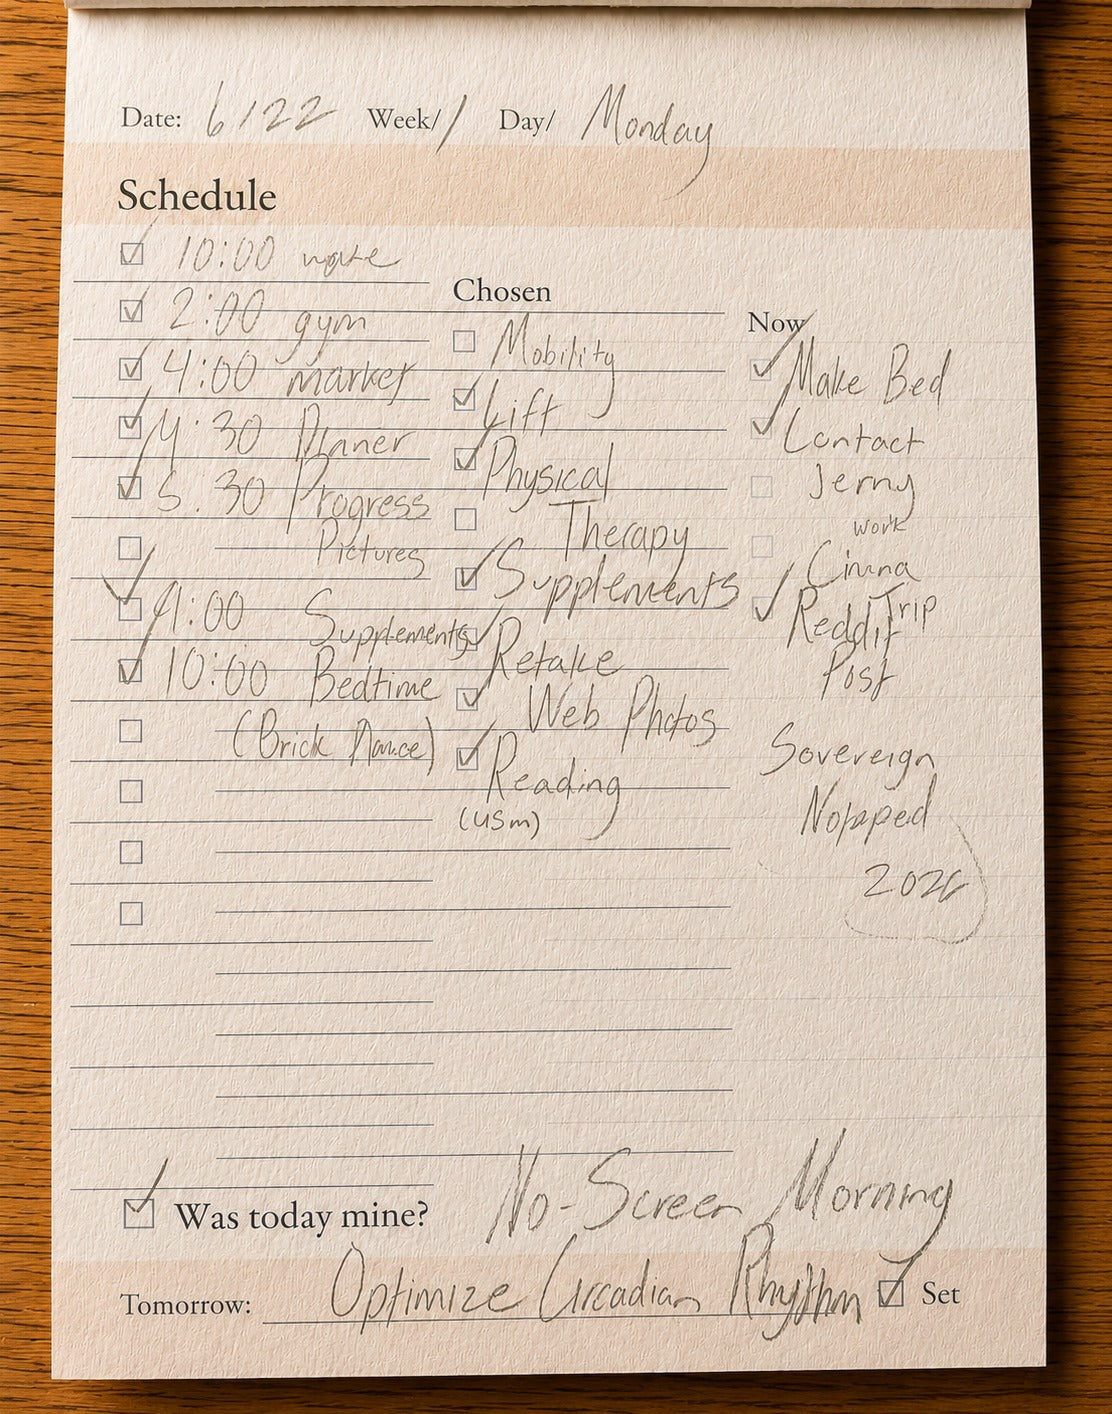 Date: 6/22 Week/1 Day/ Monday
Schedule
10:00 wake
2:00 gym
4:00 market
4:30 Dinner
5:30 Progress
Pictures
9:00 Supplements
10:00 Bedtime
(Brick
Chosen
Mobility
Lift
Physical
Therapy
Supplements
Retake
Web Photos
Reading
(USM)
Now
Make Bed
Contact
Jerny
work
Trip
Reddit
Post
Sovereign
2026
Was today mine? No-Screen Morning
Tomorrow: Optimize Circadian Rhythm Set